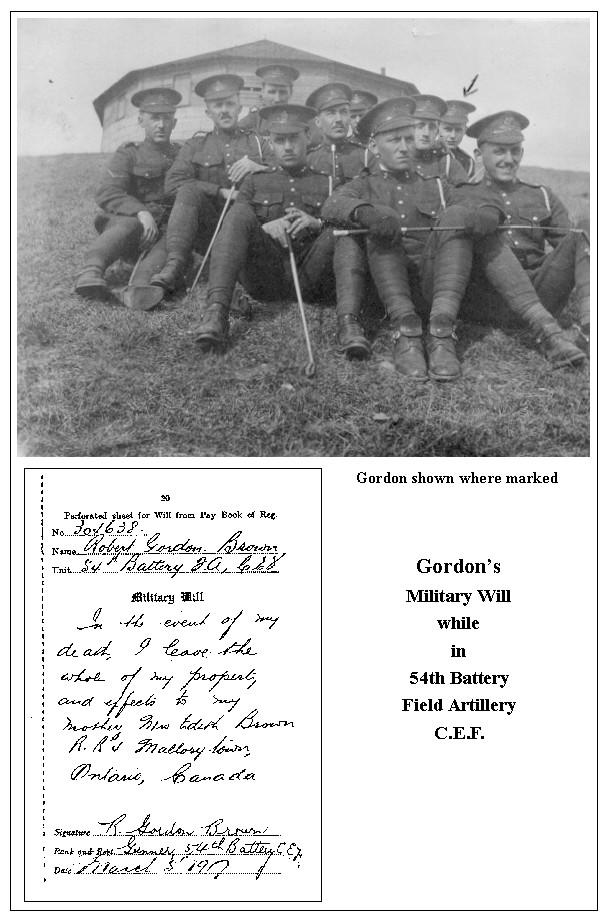 Gordon shown where marked
20
Perforated sheet for Will from Pay Book of Reg.
No. 304638.
Name Robert Gordon Brown
Unit 54th Battery F.A., C.E.F.
Military Will
In the event of my
death, I leave the
whole of my property,
and effects to my
mother, Mrs Edith Brown
Mallorytown,
Ontario, Canada
Signature R. Gordon Brown
Rank and Regt. Gunner, 54th Battery C.E.F.
Date March 5 1917
Gordon's
Military Will
while
in
54th Battery
Field Artillery
C.E.F.